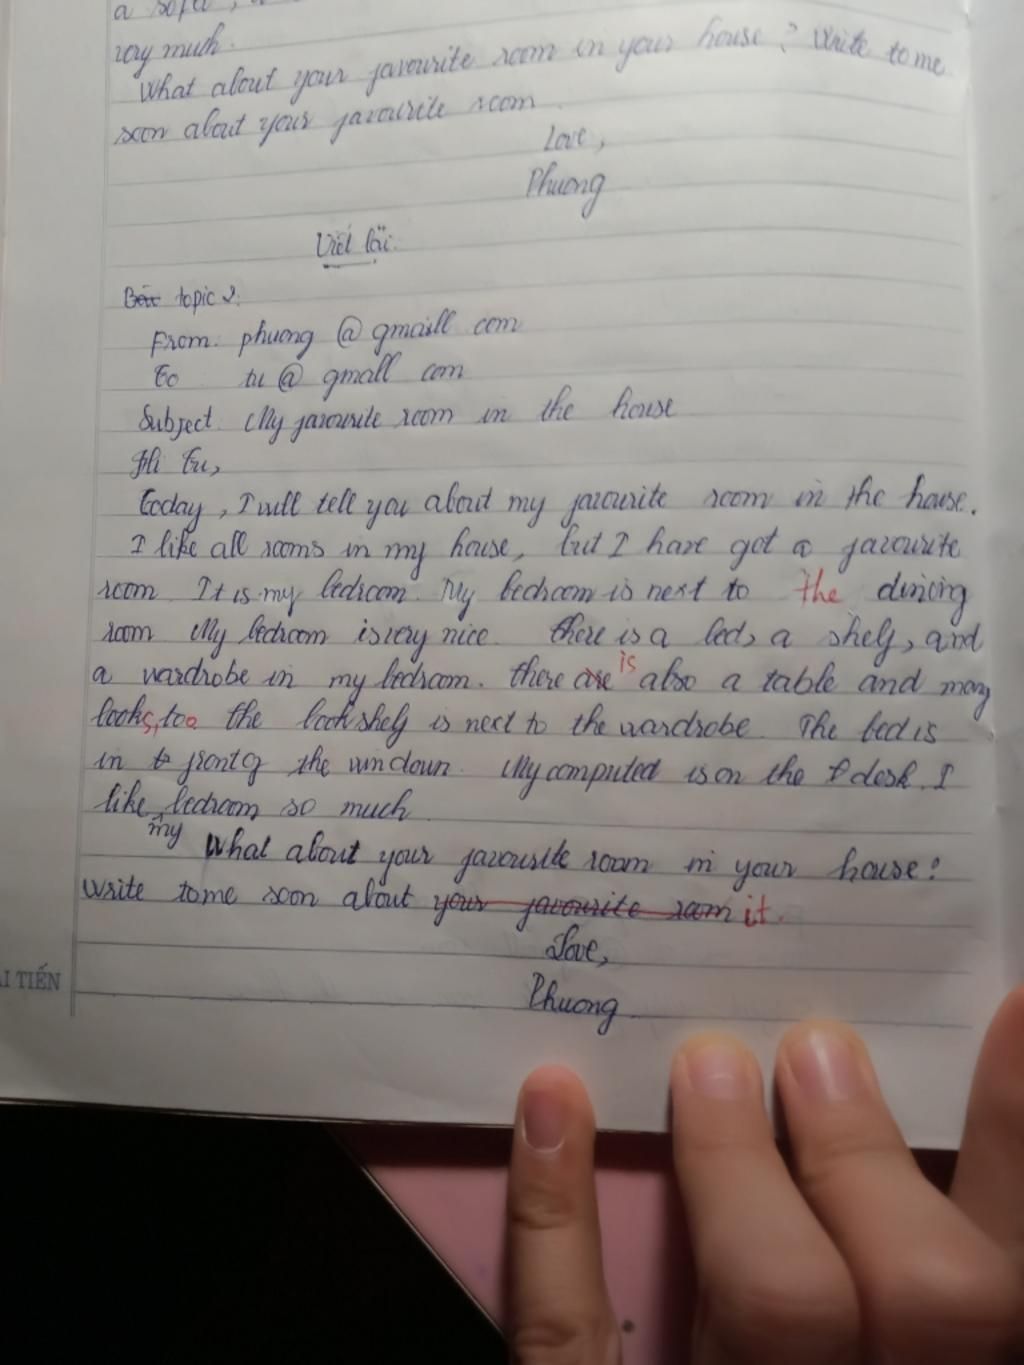 a sofa,
very much.
What about your favourite room in your house? Write to me
soon about your favourite room.
Love,
Phuong
Viết lại:
Bài topic 2:
From: phuong @ gmaill com
To tu @ gmall com
Subject: My favourite room in the house
Hi Tu,
Today, I will tell you about my favourite room in the house.
I like all rooms in my house, but I have got a favourite
room. It is my bedroom. My bedroom is next to the dining
room. My bedroom is very nice. there is a bed, a shelf, and
a wardrobe in my bedroom. there are is also a table and many
books, too the bookshelf is next to the wardrobe. The bed is
in front of the windown. My computed is on the desk. I
like my bedroom so much.
What about your favourite room in your house?
Write to me soon about your favourite room it.
Love,
Phuong
ẢI TIẾN